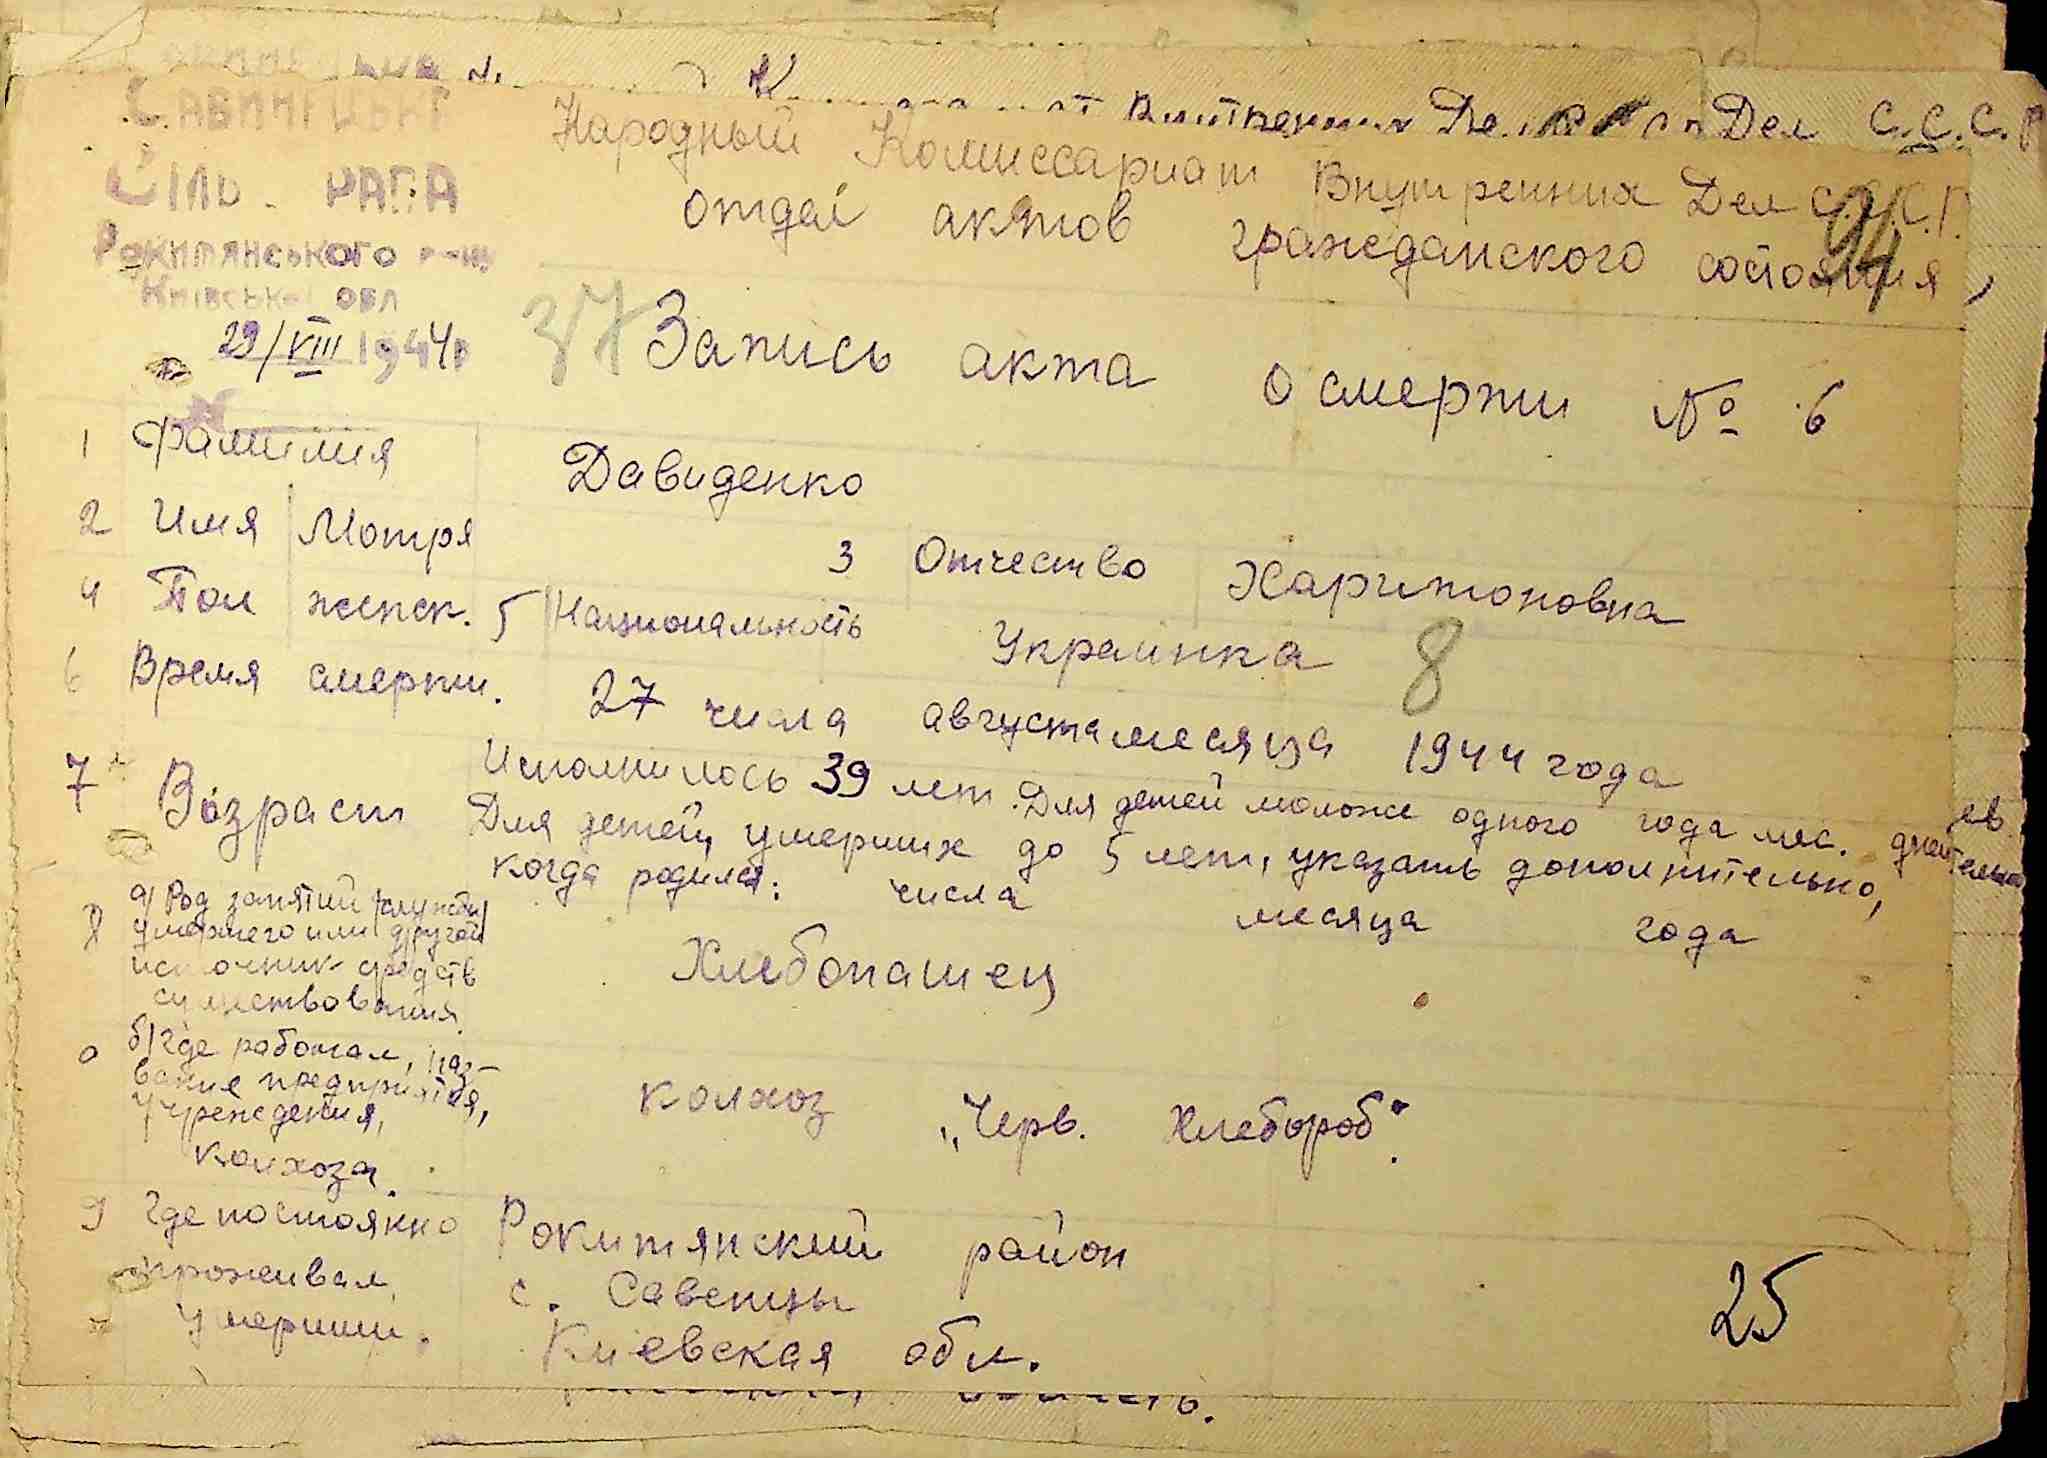 Савинецька
Сіль. рада
Рокитянського р-ну
Київської обл
29/VIII 1944р
Дел С.С.С.Р
Народный Комиссариат Внутренних Дел С.С.С.Р.
94
отдел актов гражданского состояния,
37
Запись акта о смерти № 6
1 Фамилия Давиденко
2 Имя Мотря 3 Отчество Харитоновна
4 Пол женск. 5 Национальность Украинка
8
6 Время смерти. 27 числа августа месяца 1944 года
7 Возраст Исполнилось 39 лет. Для детей моложе одного года мес. дней
Для детей, умерших до 5 лет, указать дополнительно,
когда родился: числа месяца года
8 а) Род занятий /службы/
умершего или другой
источник средств
существования.
Хлебопашец
б) Где работал, наз-
вание предприятия,
учреждения,
колхоза.
колхоз „Черв. Хлебороб".
9 Где постоянно
проживал
умерший.
Рокитянский район
с. Савенцы
Киевская обл.
25